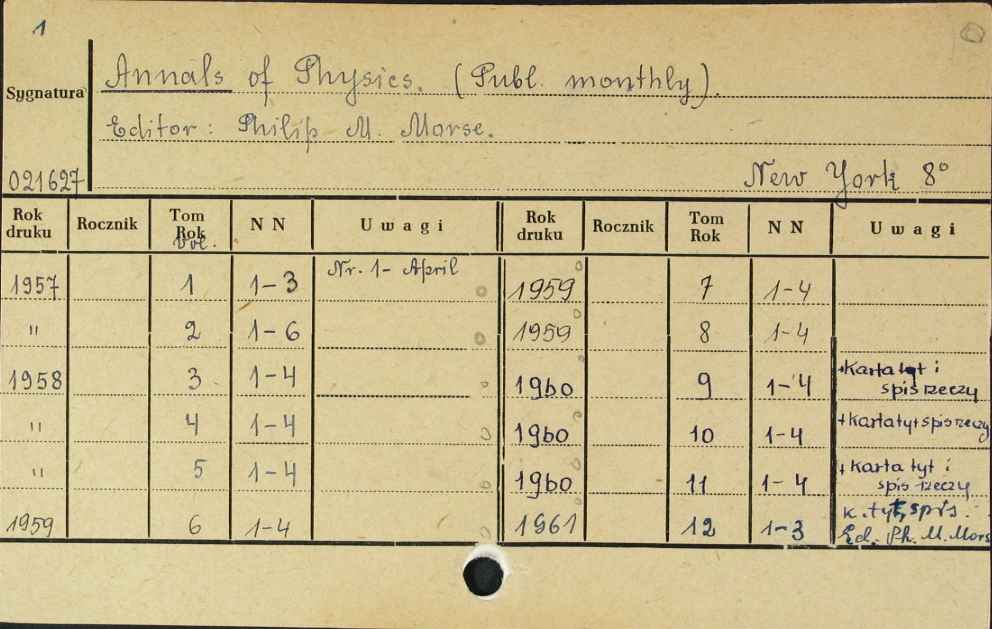 1
Annals of Physics. (Publ. monthly).
Sygnatura
Editor: Philip M. Morse.
021627
New York 8°
Rok druku Rocznik Tom Rok Vol. N N Uwagi Rok druku Rocznik Tom Rok N N Uwagi
1957 1 1-3 Nr. 1- April 1959 7 1-4
" 2 1-6 1959 8 1-4
1958 3 1-4 1960 9 1-4 +Karta tyt i spis rzeczy
" 4 1-4 1960 10 1-4 +Karta tyt spis rzeczy
" 5 1-4 1960 11 1-4 + Karta tyt i spis rzeczy
1959 6 1-4 1961 12 1-3 K. tyt, spis. Ed. Ph. M. Mors